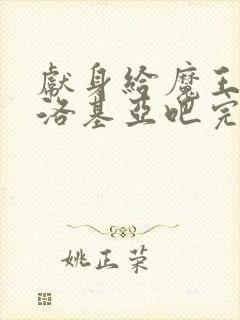 獻身給魔王
洛基亞吧完
姚正荣